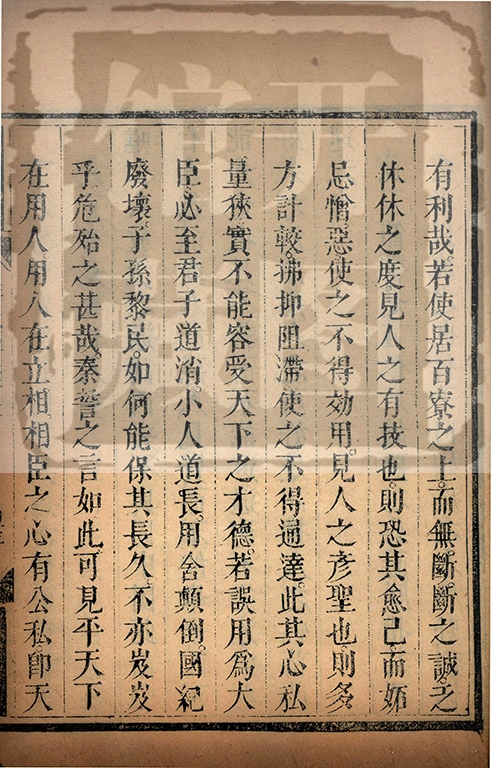 有利哉若使居百寮之上而無斷斷之誠之
休休之度見人之有技也則恐其愈己而妬
忌憎惡使之不得効用見人之彥聖也則多
方計較拂抑阻滯使之不得通達此其心私
量狹實不能容受天下之才德若誤用爲大
臣必至君子道消小人道長用舍顛倒國紀
廢壞子孫黎民如何能保其長久不亦岌岌
乎危殆之甚哉秦誓之言如此可見平天下
在用人用人在立相相臣之心有公私卽天